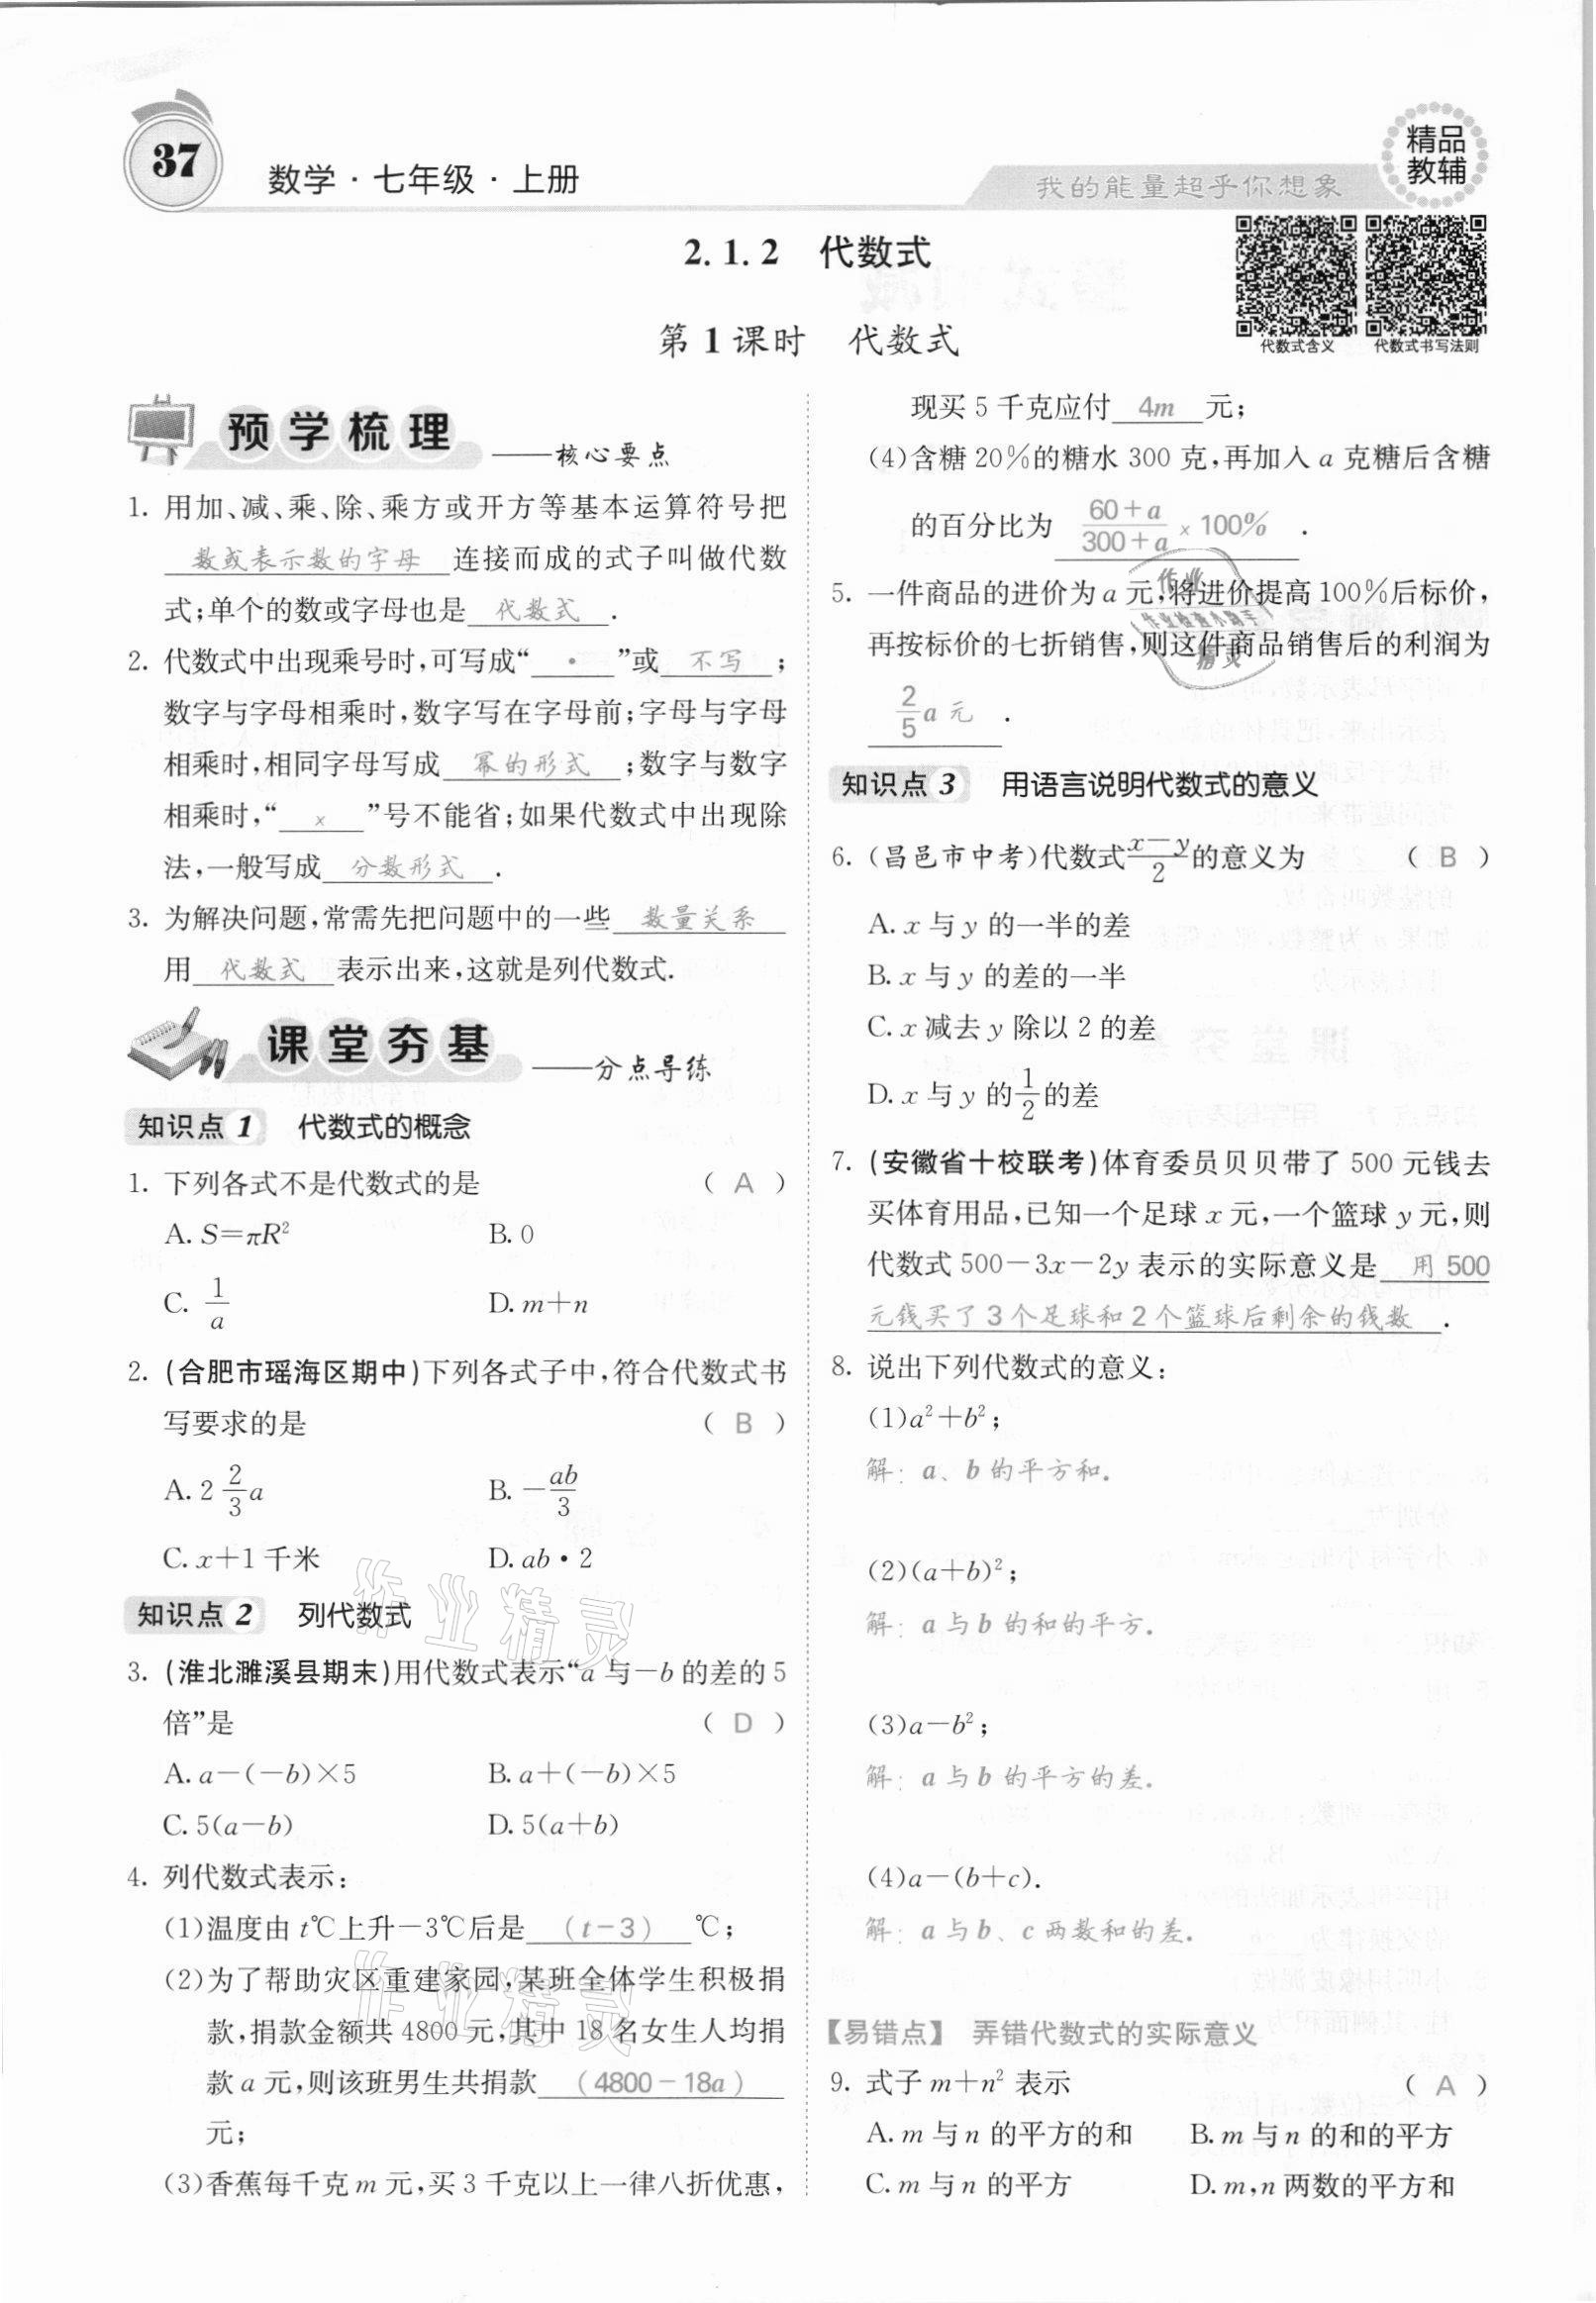 37
数学·七年级·上册
我的能量超乎你想象
精品
教辅
2.1.2 代数式
第1课时 代数式
代数式含义 代数式书写法则
预学梳理 ——核心要点
1. 用加、减、乘、除、乘方或开方等基本运算符号把
数或表示数的字母 连接而成的式子叫做代数
式;单个的数或字母也是 代数式 .
2. 代数式中出现乘号时,可写成“ · ”或 不写 ;
数字与字母相乘时,数字写在字母前;字母与字母
相乘时,相同字母写成 幂的形式 ;数字与数字
相乘时,“ × ”号不能省;如果代数式中出现除
法,一般写成 分数形式 .
3. 为解决问题,常需先把问题中的一些 数量关系
用 代数式 表示出来,这就是列代数式.
课堂夯基 ——分点导练
知识点1 代数式的概念
1. 下列各式不是代数式的是 ( A )
A. S=πR² B. 0
C. 1/a D. m+n
2. (合肥市瑶海区期中)下列各式子中,符合代数式书
写要求的是 ( B )
A. 2 2/3 a B. -ab/3
C. x+1千米 D. ab·2
知识点2 列代数式
3. (淮北濉溪县期末)用代数式表示“a与-b的差的5
倍”是 ( D )
A. a-(-b)×5 B. a+(-b)×5
C. 5(a-b) D. 5(a+b)
4. 列代数式表示:
(1)温度由t℃上升-3℃后是 (t-3) ℃;
(2)为了帮助灾区重建家园,某班全体学生积极捐
款,捐款金额共4800元,其中18名女生人均捐
款a元,则该班男生共捐款 (4800-18a)
元;
(3)香蕉每千克m元,买3千克以上一律八折优惠,
现买5千克应付 4m 元;
(4)含糖20%的糖水300克,再加入a克糖后含糖
的百分比为 (60+a)/(300+a) ×100% .
5. 一件商品的进价为a元,将进价提高100%后标价,
再按标价的七折销售,则这件商品销售后的利润为
2/5 a元 .
知识点3 用语言说明代数式的意义
6. (昌邑市中考)代数式(x-y)/2的意义为 ( B )
A. x与y的一半的差
B. x与y的差的一半
C. x减去y除以2的差
D. x与y的1/2的差
7. (安徽省十校联考)体育委员贝贝带了500元钱去
买体育用品,已知一个足球x元,一个篮球y元,则
代数式500-3x-2y表示的实际意义是 用500
元钱买了3个足球和2个篮球后剩余的钱数 .
8. 说出下列代数式的意义:
(1)a²+b²;
解:a、b的平方和.
(2)(a+b)²;
解:a与b的和的平方.
(3)a-b²;
解:a与b的平方的差.
(4)a-(b+c).
解:a与b、c两数和的差.
【易错点】 弄错代数式的实际意义
9. 式子m+n²表示 ( A )
A. m与n的平方的和 B. m与n的和的平方
C. m与n的平方 D. m,n两数的平方和
作业精灵
作业精灵
作业
作业检查小助手
精灵